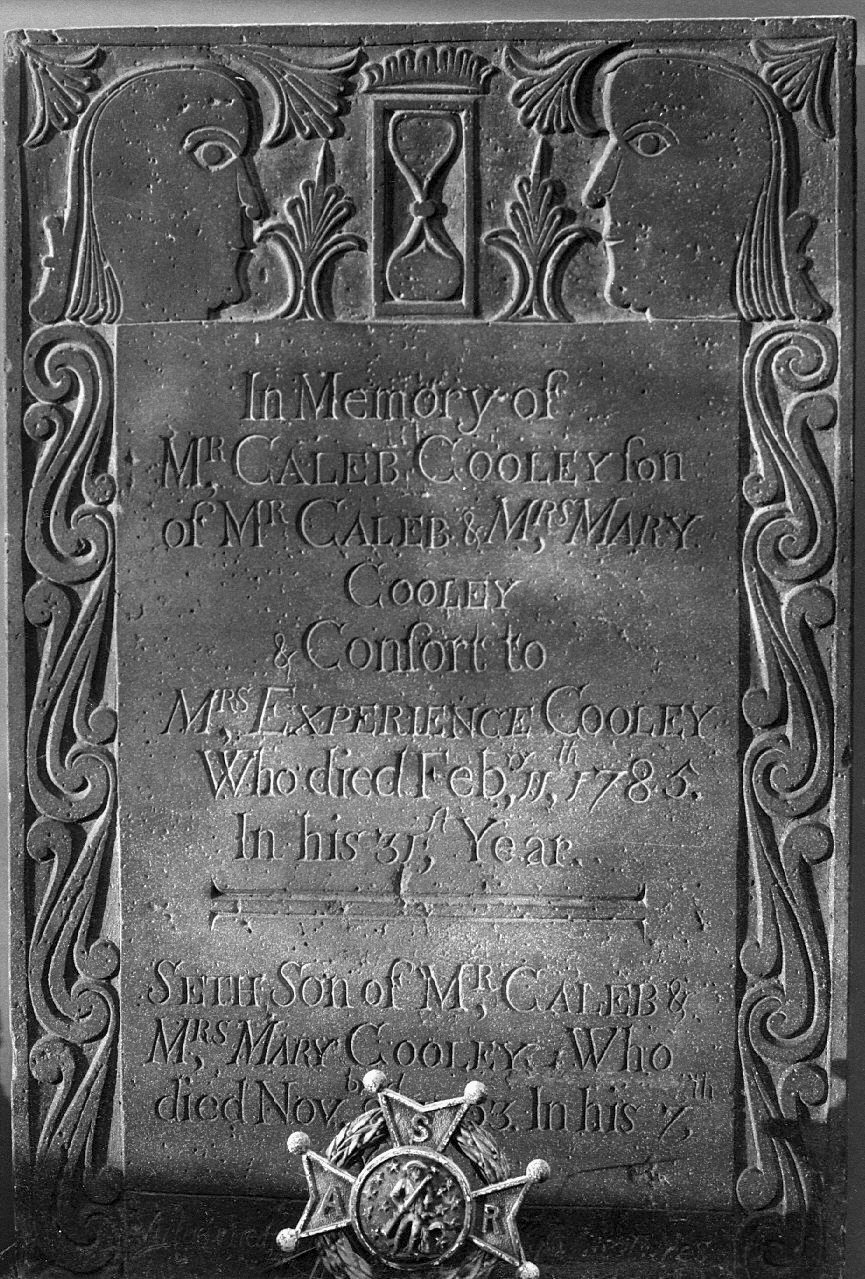 In Memory of
Mʀ, CALEB COOLEY ſon
of Mʀ CALEB & Mʀs, MARY
COOLEY
& Conſort to
Mʀs, EXPERIENCE COOLEY
Who died Feb,ʸ 11,ᵗʰ 1785.
In his 31,ſᵗ Year.
SETH Son of Mʀ, CALEB &
Mʀs, MARY COOLEY, Who
died Nov, 63. In his 7,ᵗʰ
S
A R